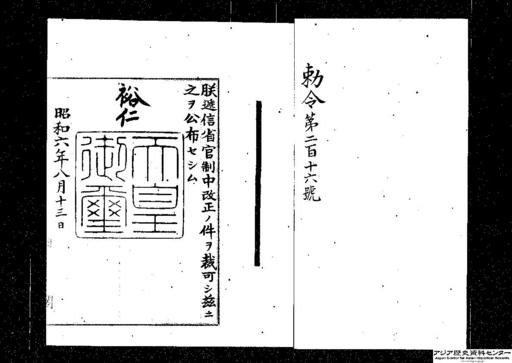 勅令第二百十六號
朕遞信省官制中改正ノ件ヲ裁可シ茲ニ
之ヲ公布セシム
裕仁
天皇
御璽
昭和六年八月十三日
アジア歴史資料センター
Japan Center for Asian Historical Records